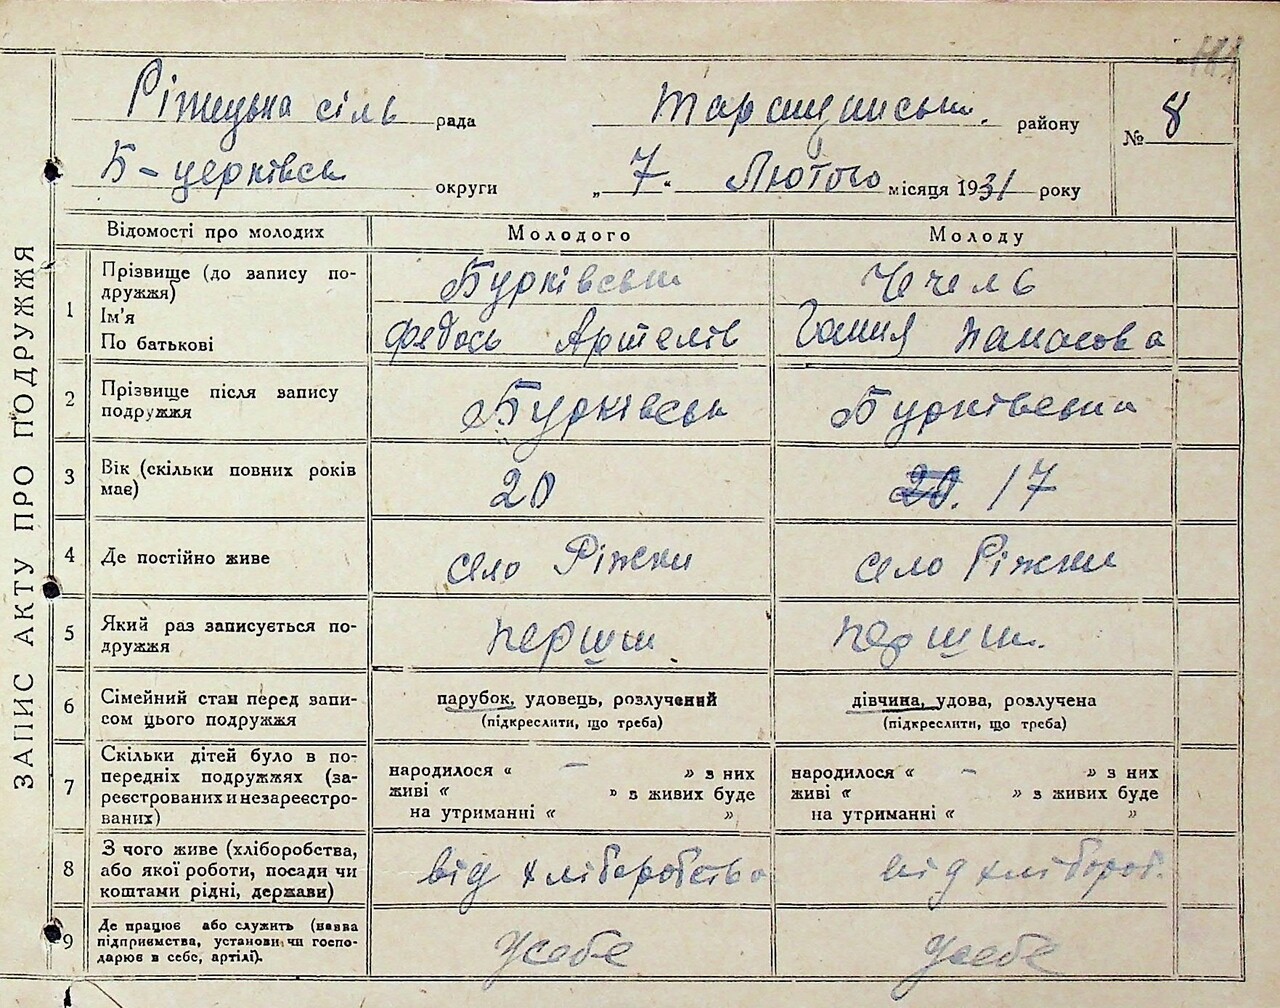 ЗАПИС АКТУ ПРО ПОДРУЖЖЯ
Ріжицька сіль рада Таращанськ. району № 8
Б-церківськ округи „ 7. Лютого місяця 1931 року
Відомості про молодих Молодого Молоду
1 Прізвище (до запису по-
дружжя)
Бурківськи Чечель
Ім'я
По батькові
Федось Артемів Ганна Панасова
2 Прізвище після запису
подружжя
Бурківськ Бурківська
3 Вік (скільки повних років
має)
20 20. 17
4 Де постійно живе село Ріжки село Ріжки
5 Який раз записується по-
дружжя
перши перши.
6 Сімейний стан перед запи-
сом цього подружжя
парубок, удовець, розлучений дівчина, удова, розлучена
(підкреслити, що треба) (підкреслити, що треба)
7 Скільки дітей було в по-
передніх подружжях (за-
реєстрованих и незареєстро-
ваних)
народилося « — » з них народилося « — » з них
живі « » в живих буде живі « » в живих буде
на утриманні « » на утриманні « »
8 З чого живе (хліборобства,
або якої роботи, посади чи
коштами рідні, держави)
від хліборобства від хлібороб.
9 Де працює або служить (назва
підприємства, установи чи госпо-
дарює в себе, артілі).
усебе усебе